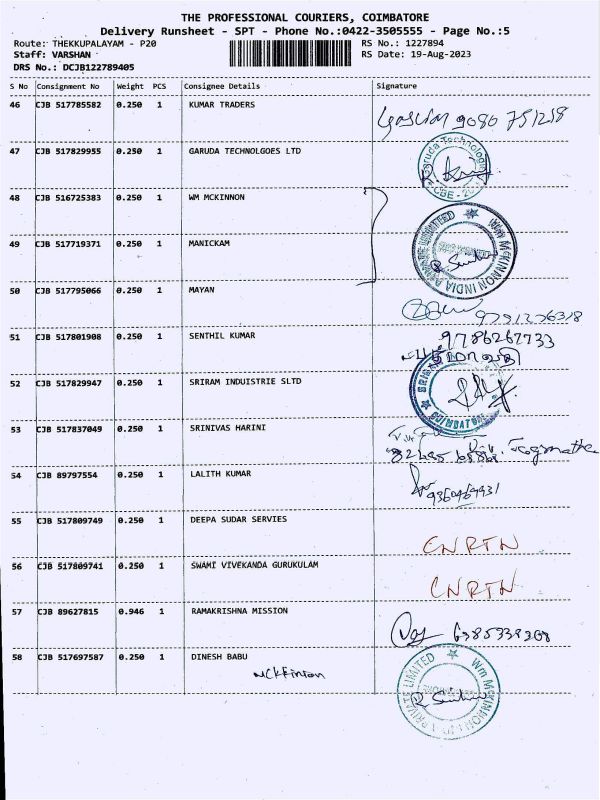 THE PROFESSIONAL COURIERS, COIMBATORE
Delivery Runsheet - SPT - Phone No.:0422-3505555 - Page No.:5
Route: THEKKUPALAYAM - P20 RS No.: 1227894
Staff: VARSHAN RS Date: 19-Aug-2023
DRS No.: DCJB122789405
S No Consignment No Weight PCS Consignee Details Signature
46 CJB 517785582 0.250 1 KUMAR TRADERS
47 CJB 517829955 0.250 1 GARUDA TECHNOLGOES LTD
Garuda Technologi
CBE
48 CJB 516725383 0.250 1 WM MCKINNON
49 CJB 517719371 0.250 1 MANICKAM
Wm McKINNON INDIA PRIVATE LIMITED
50 CJB 517795066 0.250 1 MAYAN
51 CJB 517801908 0.250 1 SENTHIL KUMAR
9786267733
52 CJB 517829947 0.250 1 SRIRAM INDUISTRIE SLTD
COIMBATORE
53 CJB 517837049 0.250 1 SRINIVAS HARINI
54 CJB 89797554 0.250 1 LALITH KUMAR
55 CJB 517809749 0.250 1 DEEPA SUDAR SERVIES
CNRTN
56 CJB 517809741 0.250 1 SWAMI VIVEKANDA GURUKULAM
CNRTN
57 CJB 89627815 0.946 1 RAMAKRISHNA MISSION
58 CJB 517697587 0.250 1 DINESH BABU
Mckfinion
Wm McKINNON PRIVATE LIMITED